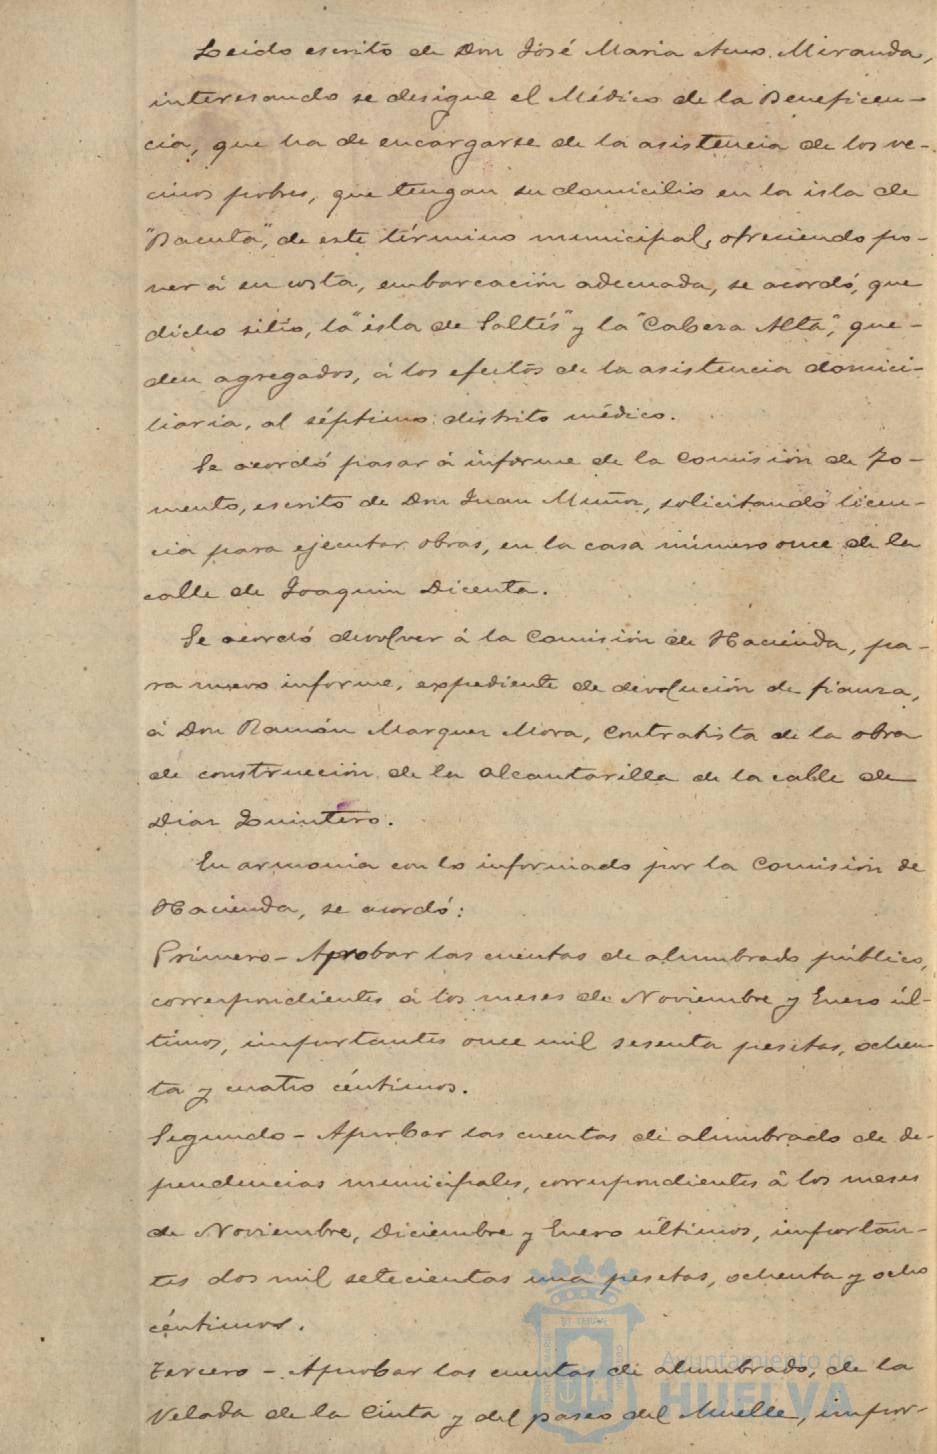 Leido escrito de Don José Maria Amo Miranda,
interesando se designe el Médico de la Beneficen-
cia, que ha de encargarse de la asistencia de los ve-
cinos pobres, que tengan su domicilio en la isla de
"Bacuta", de este término municipal, ofreciendo po-
ner á su costa, embarcación adecuada, se acordó, que
dicho sitio, la "isla de Saltés" y la "Cabeza Alta", que-
den agregados, á los efectos de la asistencia domici-
liaria, al séptimo distrito médico.
Se acordó pasar á informe de la Comisión de Fo-
mento, escrito de Don Juan Muñoz, solicitando licen-
cia para ejecutar obras, en la casa número once de la
calle de Joaquin Dicenta.
Se acordó devolver á la Comisión de Hacienda, pa-
ra nuevo informe, expediente de devolución de fianza,
á Don Ramón Marquez Mora, Contratista de la obra
de construcción de la alcantarilla de la calle de
Diaz Quintero.
En armonia con lo informado por la Comisión de
Hacienda, se acordó:
Primero - Aprobar las cuentas de alumbrado público,
correspondientes á los meses de Noviembre y Enero úl-
timos, importantes once mil sesenta pesetas, ochen-
ta y cuatro céntimos.
Segundo - Aprobar las cuentas de alumbrado de de-
pendencias municipales, correspondientes á los meses
de Noviembre, Diciembre y Enero últimos, importan-
tes dos mil setecientas una pesetas, ochenta y ocho
céntimos.
Tercero - Aprobar las cuentas de alumbrado, de la
Velada de la Cinta y del paseo del Muelle, impor-
Ayuntamiento de
HUELVA